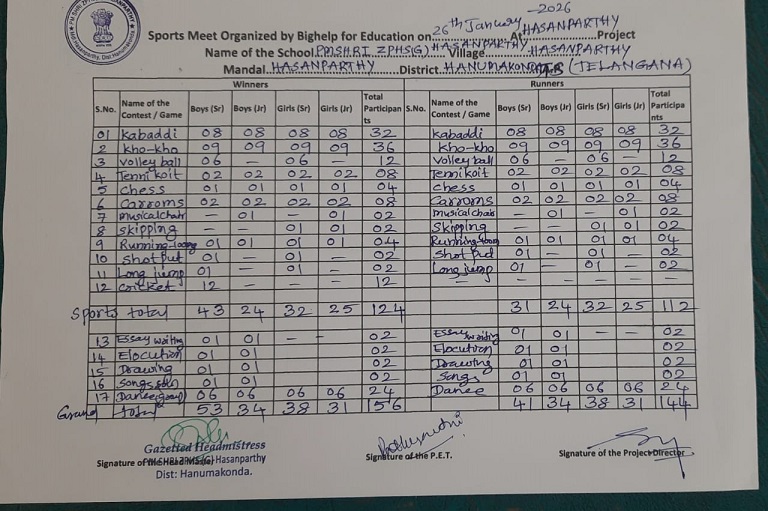 Sports Meet Organized by Bighelp for Education on 26th January -2026 At HASANPARTHY Project
Name of the School PMSHRI ZPHS(G) HASANPARTHY Village HASANPARTHY
Mandal HASANPARTHY District HANUMAKONDA (TELANGANA)
Winners Runners
S.No. Name of the Contest / Game Boys (Sr) Boys (Jr) Girls (Sr) Girls (Jr) Total Participants S.No. Name of the Contest / Game Boys (Sr) Boys (Jr) Girls (Sr) Girls (Jr) Total Participants
01 Kabaddi 08 08 08 08 32 Kabaddi 08 08 08 08 32
2 Kho-kho 09 09 09 09 36 Kho-kho 09 09 09 09 36
3 Volley ball 06 — 06 — 12 Volley ball 06 — 06 — 12
4 Tennikoit 02 02 02 02 08 Tennikoit 02 02 02 02 08
5 Chess 01 01 01 01 04 Chess 01 01 01 01 04
6 Carroms 02 02 02 02 08 Carroms 02 02 02 02 08
7 Musical chair — 01 — 01 02 Musical chair — 01 — 01 02
8 Skipping — — 01 01 02 Skipping — — 01 01 02
9 Running-loong 01 01 01 01 04 Running-loong 01 01 01 01 04
10 Shot Put 01 — 01 — 02 Shot Put 01 — 01 — 02
11 Long jump 01 — 01 — 02 Long jump 01 — 01 — 02
12 Cricket 12 — — — 12 — — — — —
Sports total 43 24 32 25 124 31 24 32 25 112
13 Essay writing 01 01 — — 02 Essay writing 01 01 — — 02
14 Elocution 01 01 02 Elocution 01 01 02
15 Drawing 01 01 02 Drawing 01 01 02
16 Songs 01 01 02 Songs 01 01 02
17 Dance 06 06 06 06 24 Dance 06 06 06 06 24
Grand total 53 34 38 31 156 41 34 38 31 144
Gazetted Headmistress
Signature of the PMSHRI ZPHS(G) Hasanparthy Signature of the P.E.T. Signature of the Project Director
Dist: Hanumakonda.